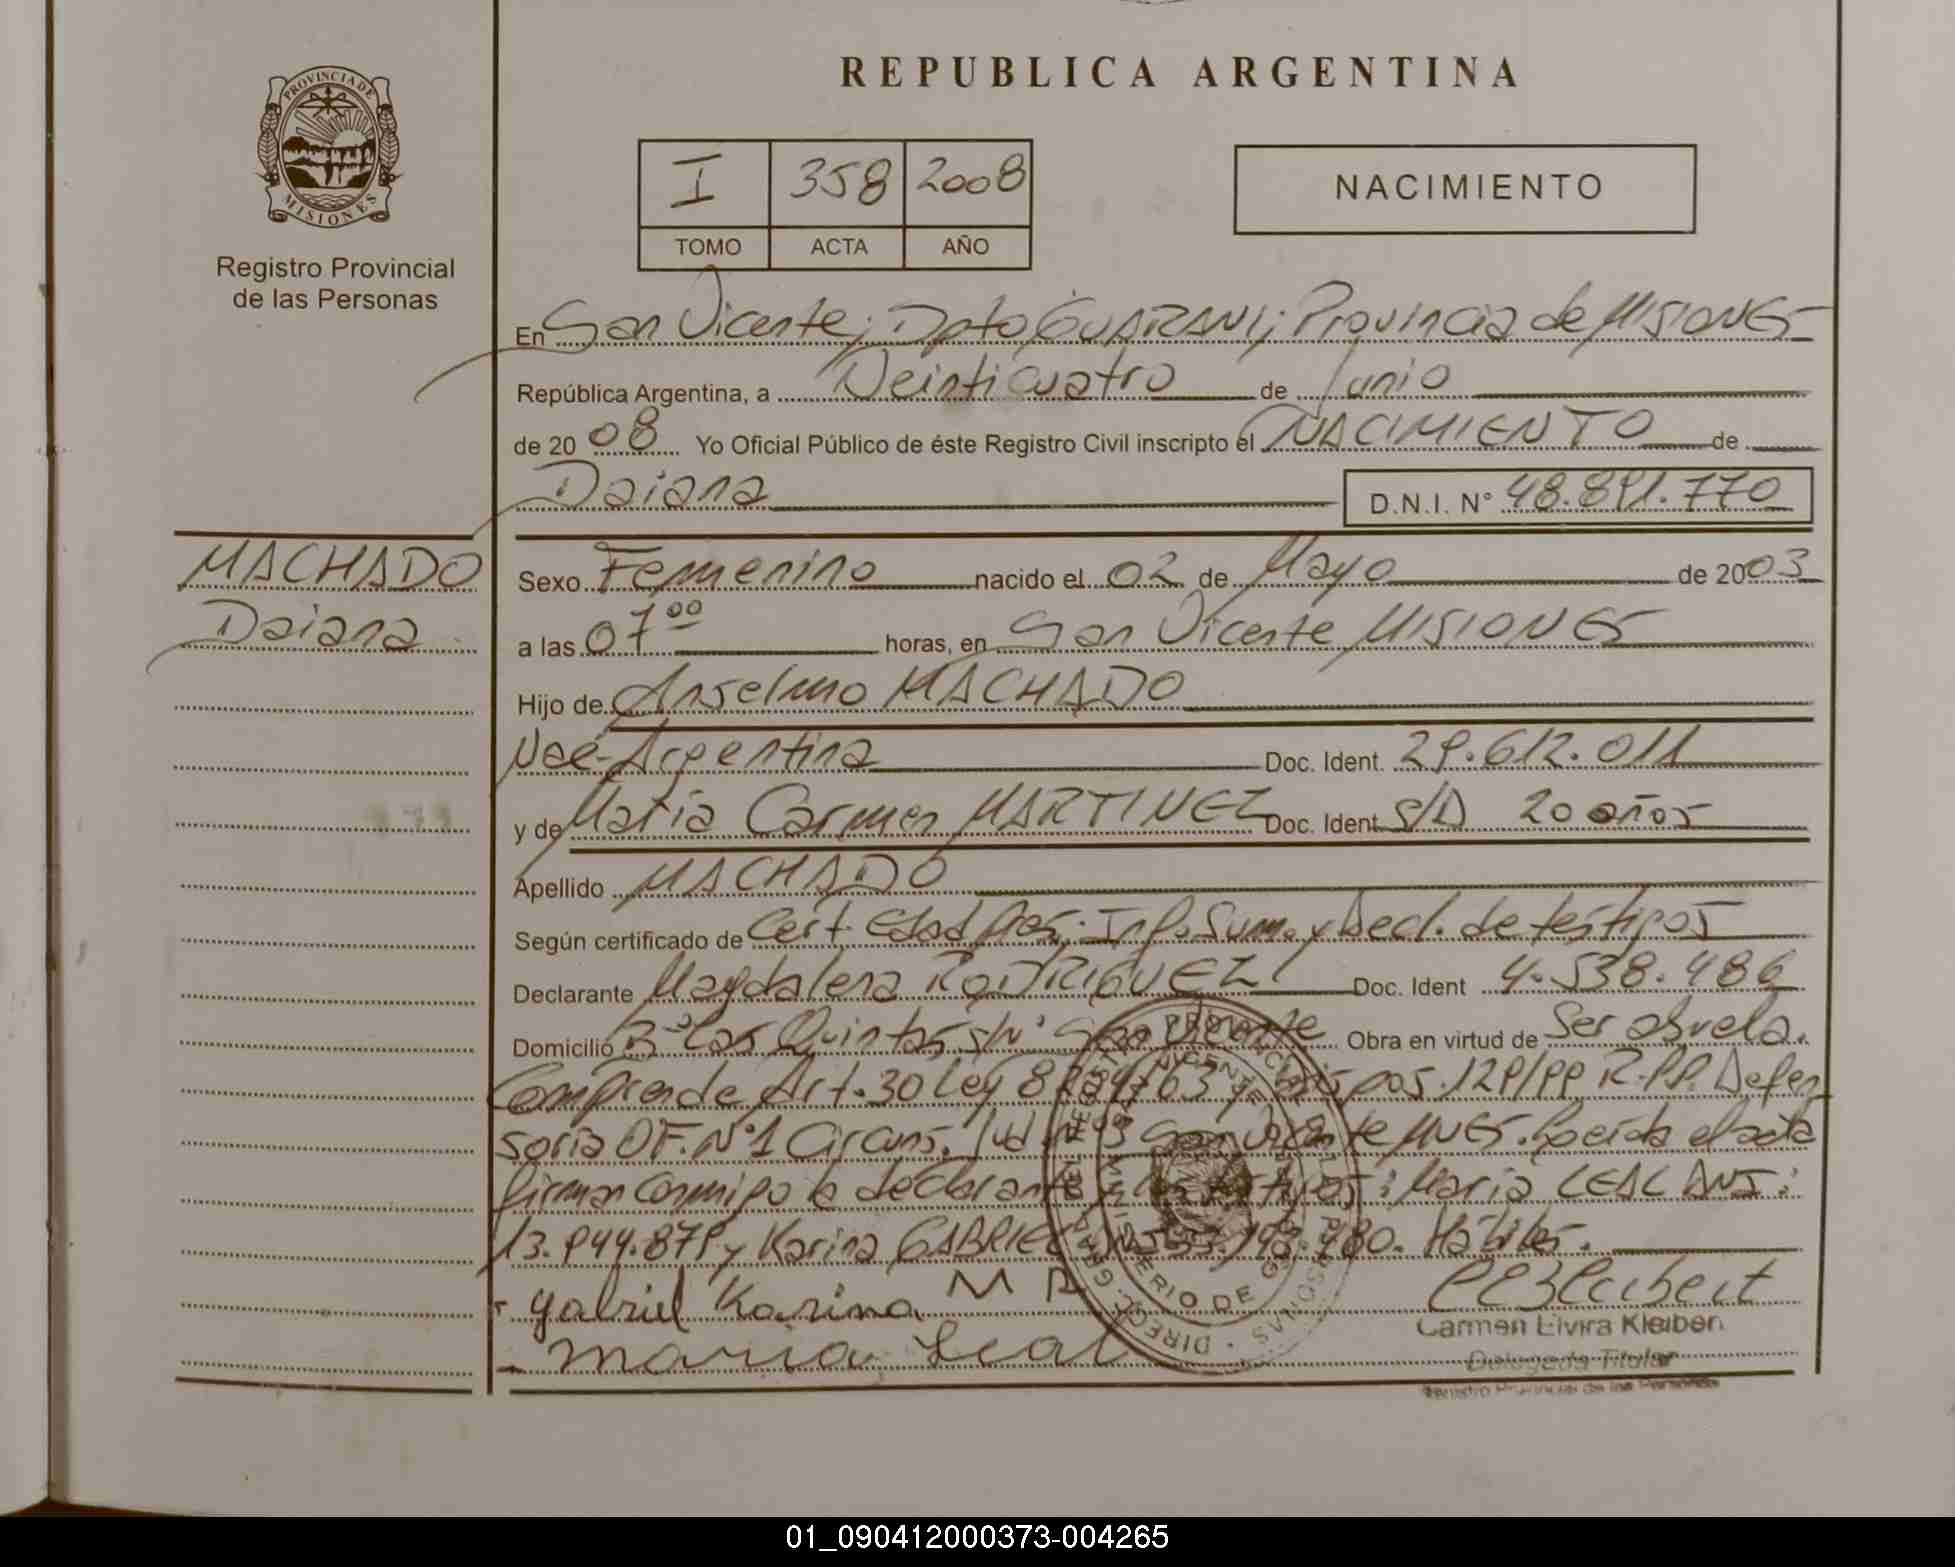 PROVINCIA DE
MISIONES
Registro Provincial
de las Personas
REPUBLICA ARGENTINA
I 358 2008
TOMO ACTA AÑO
NACIMIENTO
En San Vicente; Dpto GUARANI; Provincia de MISIONES
República Argentina, a Veinticuatro de Junio
de 2008 Yo Oficial Público de éste Registro Civil inscripto el NACIMIENTO de
Daiana D.N.I. N° 48.891.770
MACHADO
Daiana
Sexo Femenino nacido el 02 de Mayo de 2003
a las 07 00 horas, en San Vicente MISIONES
Hijo de Anselmo MACHADO
Nac-Argentina Doc. Ident. 29.612.011
y de Maria Carmen MARTINEZ Doc. Ident S/D 20 años
Apellido MACHADO
Según certificado de Cert. Edad Inf. Sum. y Decl. de testigos
Declarante Magdalena RODRIGUEZ Doc. Ident 4.538.486
Domicilio B° Las Quintas s/N° San Vicente Obra en virtud de Ser abuela.
Comprende Art. 30 Ley 8204/63 y 129/99 R.P.P. Defen
soria OF. N°1 Circuns. Jud. San Vicente MNES. Leida el acta
firman conmigo la declarante y los testigos: Maria LEAL DNI:
13.944.879 y Karina GABRIEL 980. Hábiles.
Gabriel Karina M R
Maria Leal
Carmen Elvira Kleibert
Delegada Titular
Registro Provincial de las Personas
01_090412000373-004265